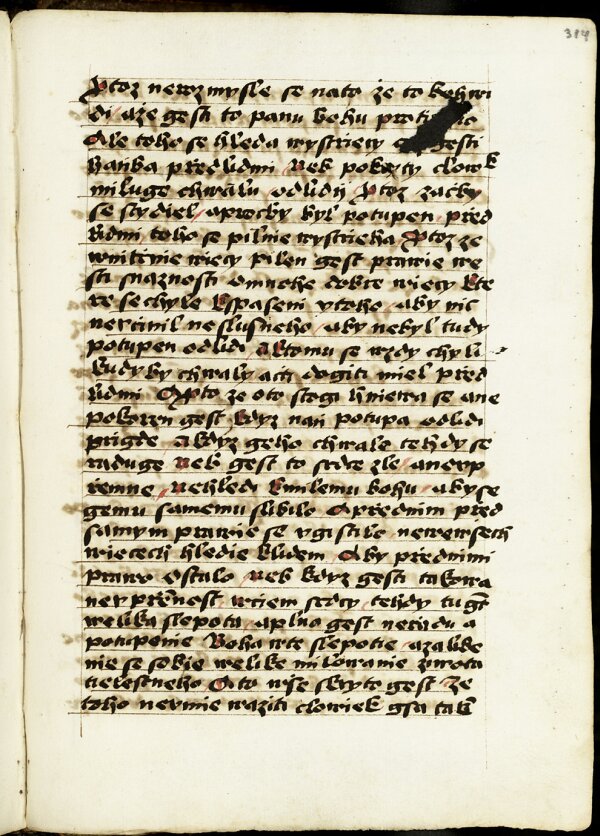 384
Ptoz nerozmysle se nato ze to
di aze gest to panu bohu
Ale toho se hleda wystrziecy gesti
hanba przed lidmi Neb clowiek
miluge chwalu odlidij Ptoz zacby
se stydiel aprocby byl potupen przed
lidmi toho se pilnie wystrieha Ptoz ze
wnitrnie wiecy pilen gest prawie we
sti snaznosti omnohe dobre wiecy kte
re se chyle kspaseni vtoho aby nic
necinil neslusneho aby nebyl tudy
potupen odlidi Aktomu se wzdy chyli
kudy by chwaly acti dogiti miel przed
lidmi Ato ze oto stogi hniewa se ane
pokoren gest kdyz nan potupa odlidi
prigde Akdyz geho chwale tehdy se
raduge Neb gest to srdce zle aneup
remne Nehledi kmilemu bohu aby se
gemu samemu slibilo Aprzednim przed
samym prawie se vgistilo newewssech
wiecech hledie klidem Aby przednimi
prawo ostalo Neb kdyz gesti takowa
neuprzimnost wciem srdcy tehdy tu gest
welika slepota aplno gest neradu a
potupenie Boha wte slepotie azalibe
nie se sobie welike milowanie zwota
tielestneho Ato wsse skryto gest Ze
toho neumie waziti clowiek gsa tak